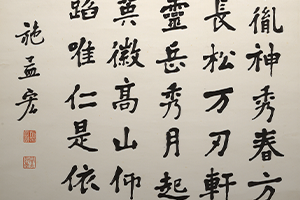 胤神秀春方
長松万刃軒
靈岳秀月起
英徽高山仰
蹈唯仁是依
施孟宏